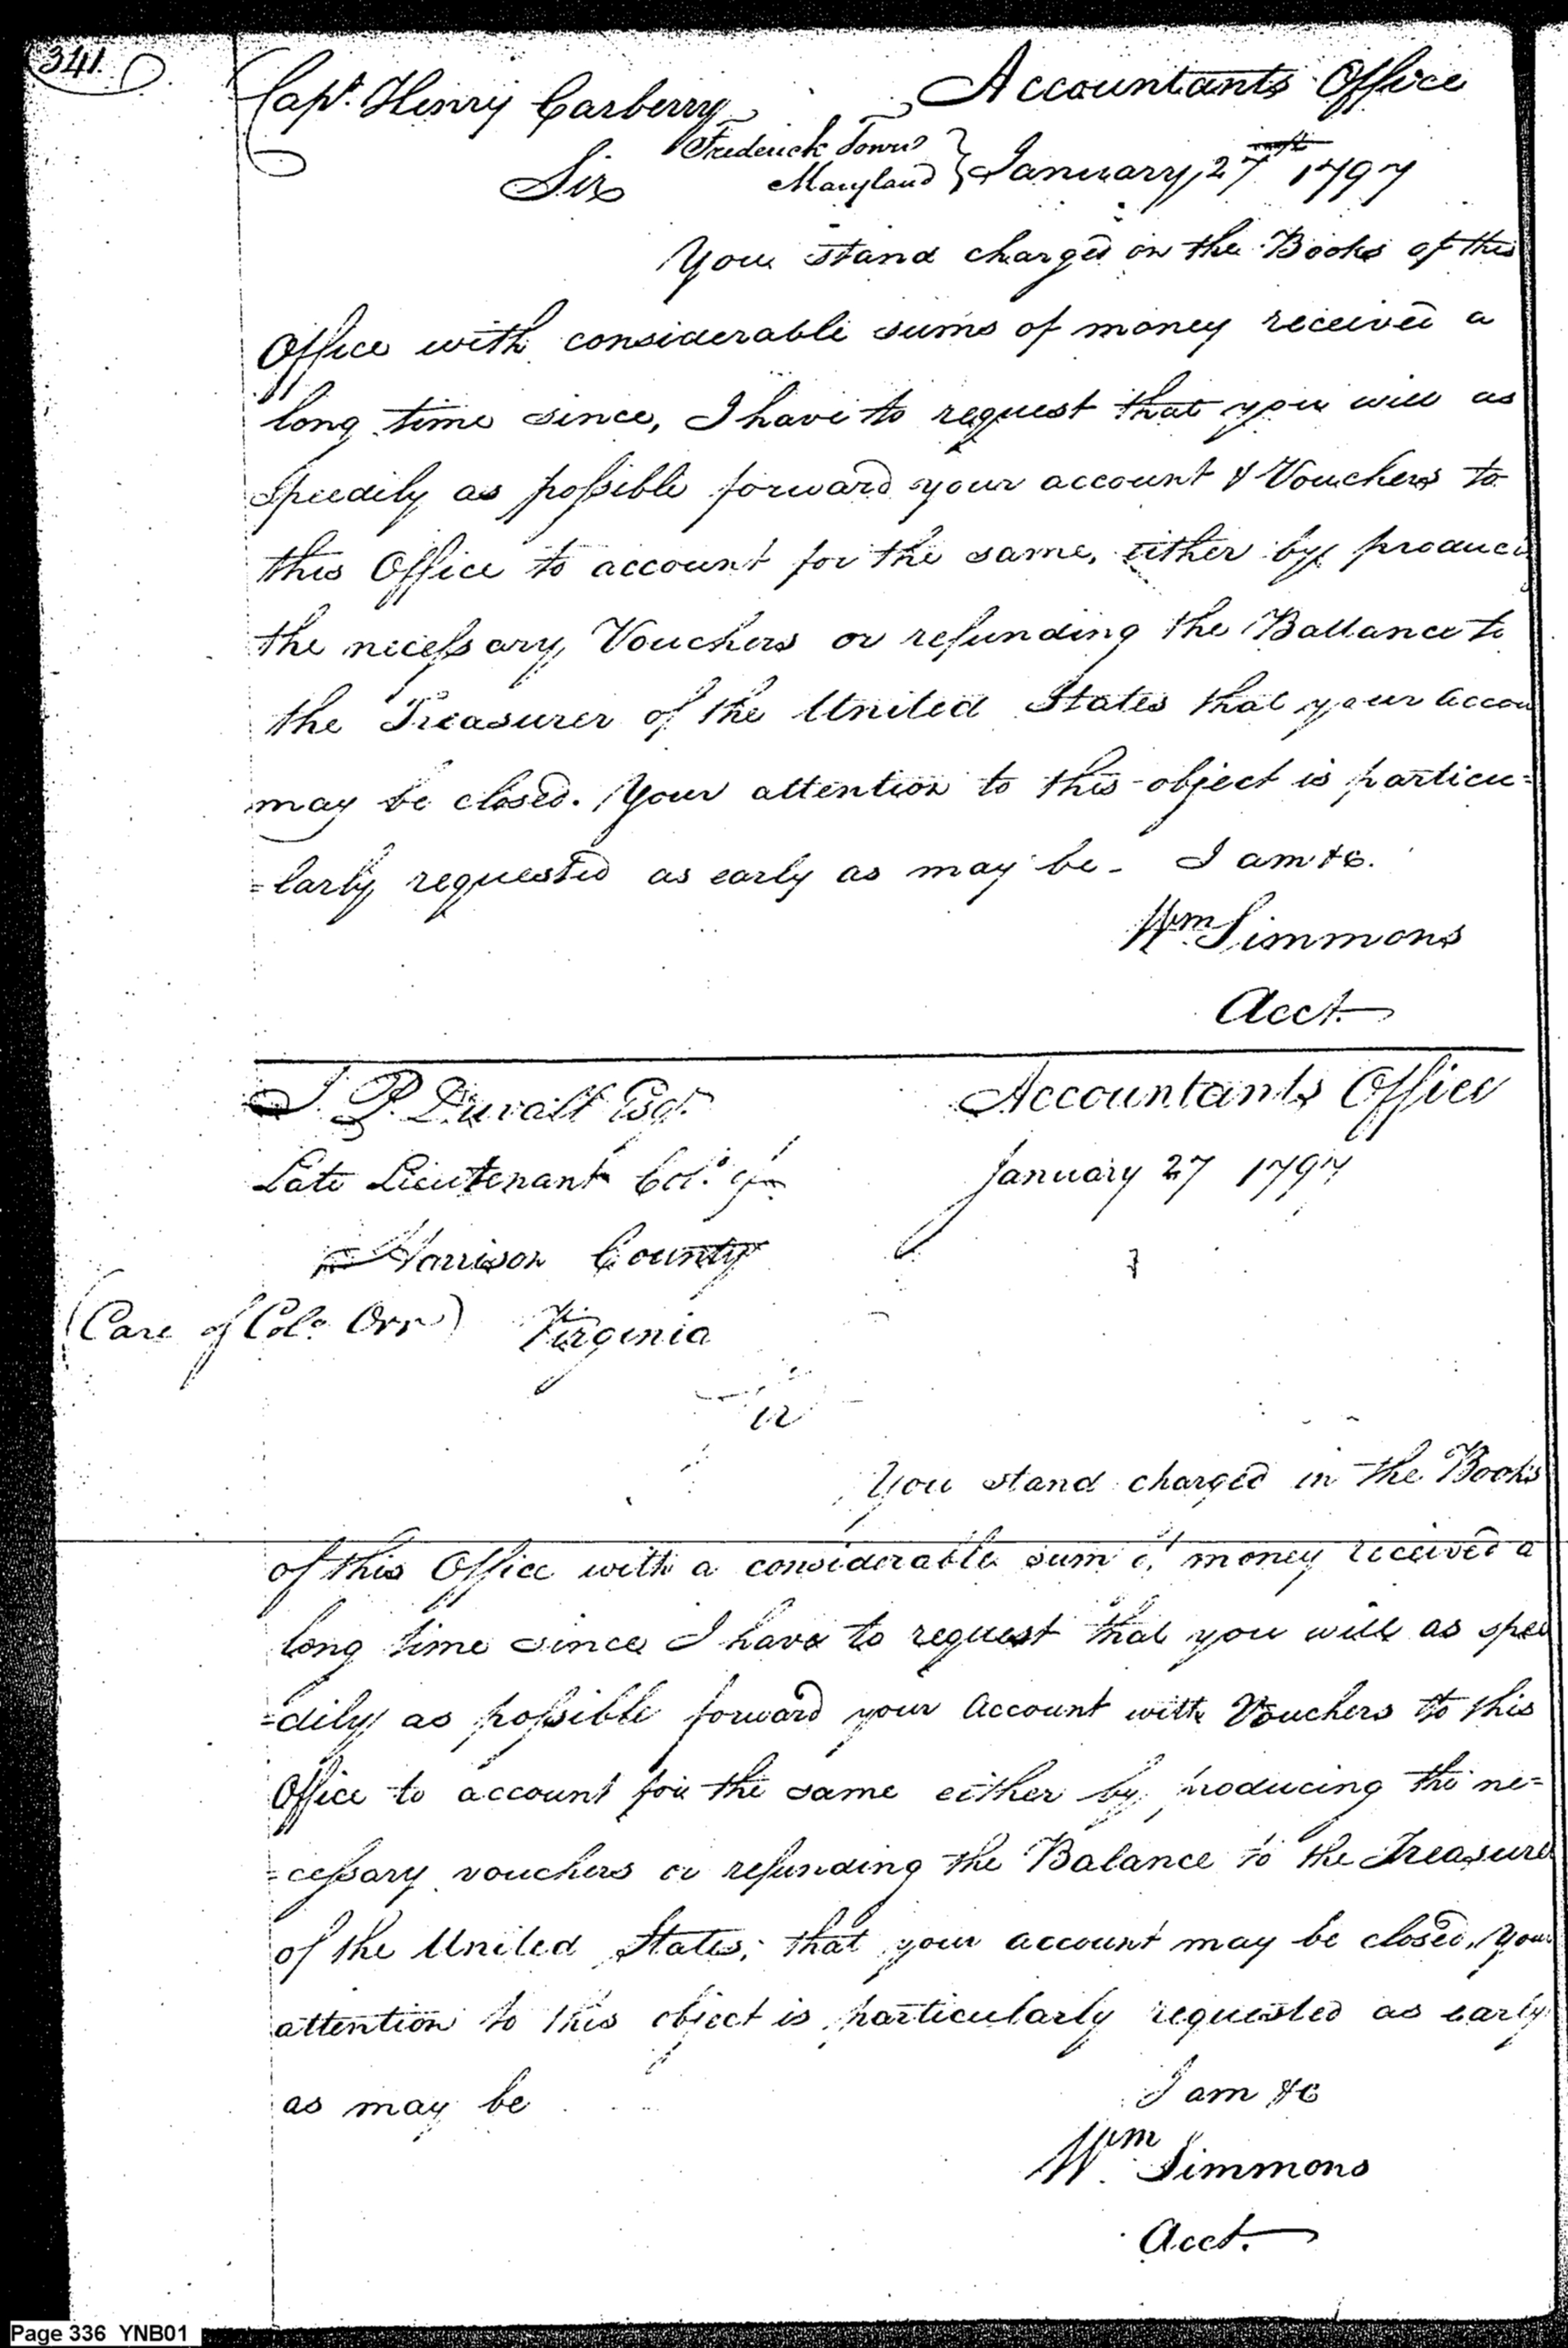 341.
Capt. Henry Carberry
Accountants Office
Frederick Town
Maryland } January 27 1797
Sir
You stand charged on the Books of this
Office with considerable sums of money received a
long time since, I have to request that you will as
speedily as possible forward your account & Vouchers to
this Office to account for the same, either by produci
the necessary Vouchers or refunding the Ballance to
the Treasurer of the United States that your accou
may be closed. Your attention to this object is particu=
=larly requested as early as may be - I am &c.
Wm Simmons
Acct.
J. P. Duvall Esqr.
Accountants Office
Late Lieutenant Colo.
January 27 1797
Harrison County
(Care of Colo. Orr) Virginia
You stand charged in the Books
of this Office with a considerable sum of money received a
long time since I have to request that you will as spee
=dily as possible forward your Account with Vouchers to this
Office to account for the same either by producing the ne=
=cessary vouchers or refunding the Balance to the Treasurer
of the United States; that your account may be closed, Your
attention to this object is particularly requested as early
as may be
I am &c
Wm. Simmons
Acct.
Page 336 YNB01